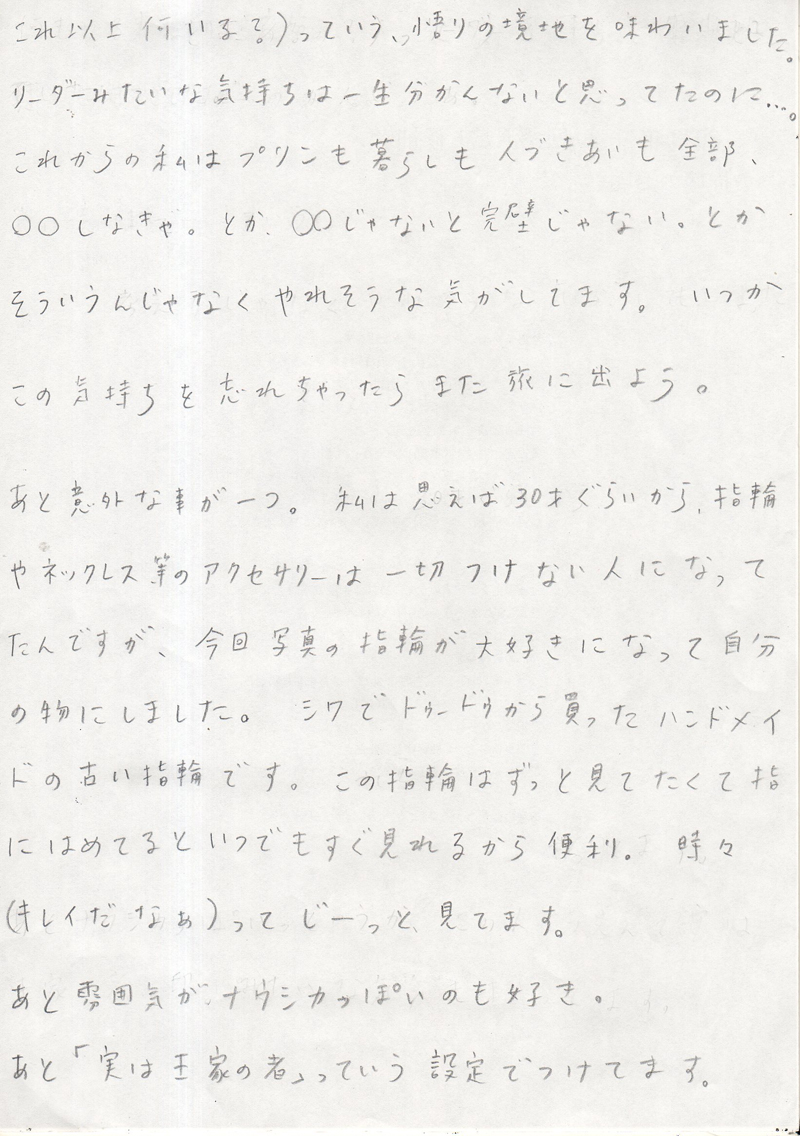 これ以上何いる?)っていう、悟りの境地を味わいました。
リーダーみたいな気持ちは一生分かんないと思ってたのに…。
これからの私はプリンも暮らしも人づきあいも全部、
〇〇しなきゃ。とか、〇〇じゃないと完璧じゃない。とか
そういうんじゃなくやれそうな気がしてます。 いつか
この気持ちを忘れちゃったらまた旅に出よう。
あと意外な事が一つ。 私は思えば30才ぐらいから、指輪
やネックレス等のアクセサリーは一切つけない人になって
たんですが、今回写真の指輪が大好きになって自分
の物にしました。 シワでドゥードゥから買ったハンドメイ
ドの古い指輪です。この指輪はずっと見てたくて指
にはめてるといつでもすぐ見れるから便利。 時々
(キレイだなぁ)ってじーっと見てます。
あと雰囲気がナウシカっぽいのも好き。
あと「実は王家の者」っていう設定でつけてます。